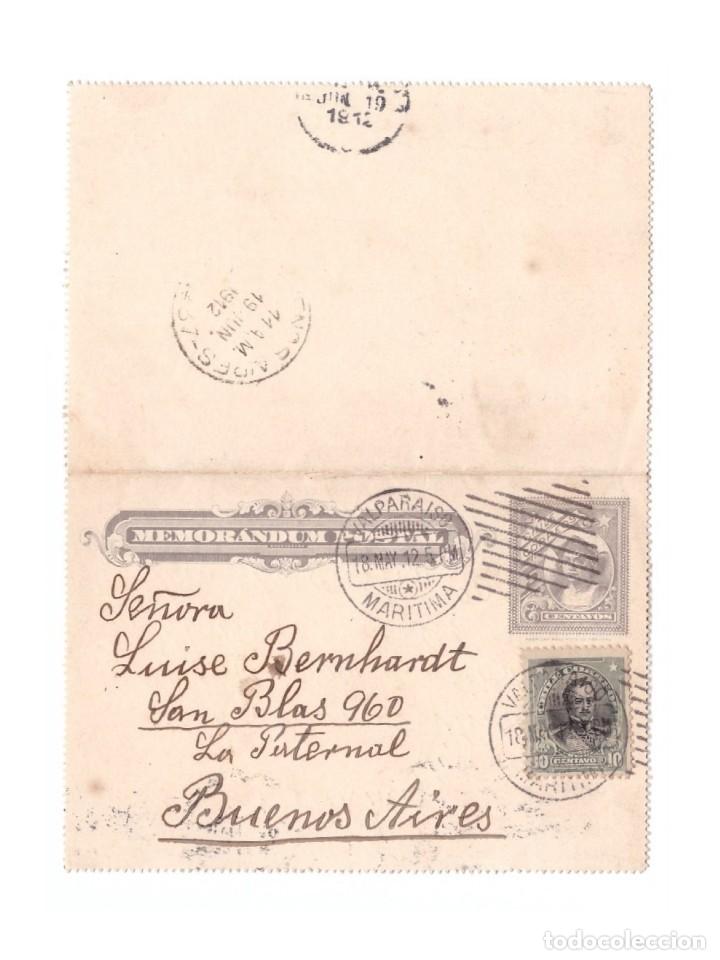 JUN 19
1912
11 A M
19 JUN
1912
MEMORANDUM POSTAL
VALPARAISO
18.MAY.12 5 PM
MARITIMA
CENTAVOS
Señora
Luise Bernhardt
San Blas 960
La Paternal
Buenos Aires
18
MARITIMA
10 CENTAVOS 10
todocoleccion